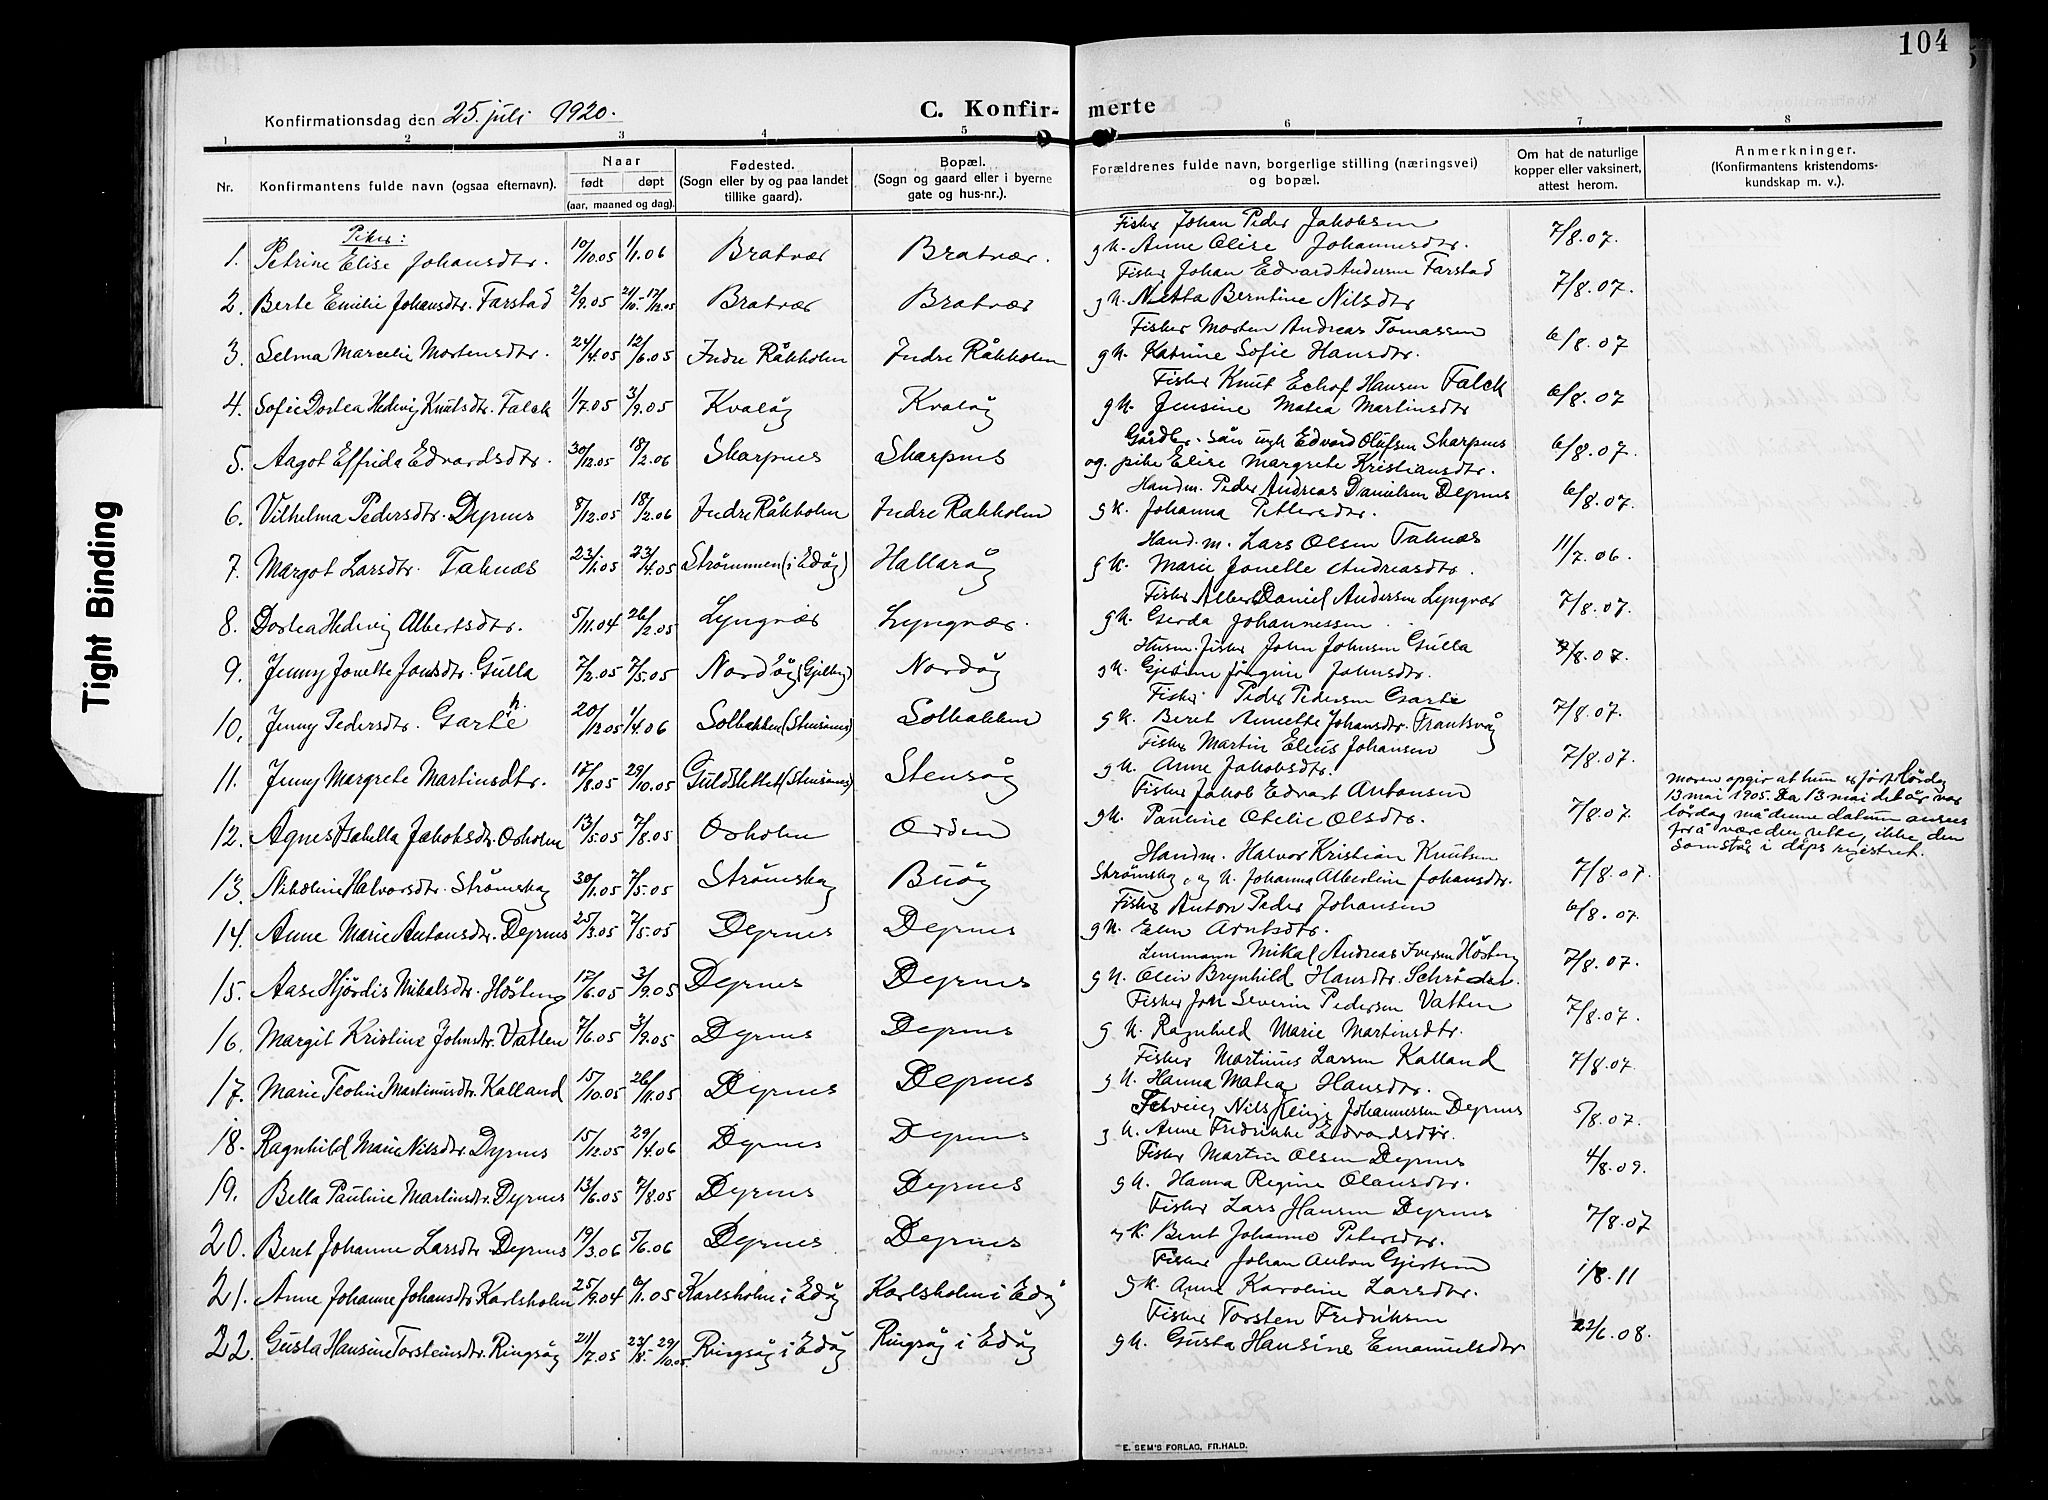 104
Konfirmationsdag den 25. juli 1920.
C. Konfirmerte
1 2 3 4 5 6 7 8
Nr. Konfirmantens fulde navn (ogsaa efternavn).
Naar
født døpt
(aar, maaned og dag).
Fødested.
(Sogn eller by og paa landet
tillike gaard).
Bopæl.
(Sogn og gaard eller i byerne
gate og hus-nr.).
Forældrenes fulde navn, borgerlige stilling (næringsvei)
og bopæl.
Om hat de naturlige
kopper eller vaksinert,
attest herom.
Anmerkninger.
(Konfirmantens kristendoms-
kundskap m. v.).
Piker:
Fisker Johan Peder Jakobsen
1. Petrine Elise Johansdtr. 10/10.05 1/1.06 Bratvær Bratvær. g h. Anne Olise Johannesdtr. 7/8.07.
Fisker Johan Edvard Andersen Farstad
2. Berte Emilie Johansdtr. Farstad 2/9.05 17/12.05 Bratvær Bratvær g h. Netta Berntine Nilsdtr 7/8.07.
Fisker Morten Andreas Tomassen
3. Selma Marcelie Mortensdtr. 24/4.05 12/6.05 Indre Råkholm Indre Råkholm g h. Katrine Sofie Hansdtr. 6/8.07
Fisker Knut Echof Hansen Falck
4. Sofie Dortea Hedvig Knutsdtr. Falck 1/7.05 3/9.05 Kvaløy Kvaløy g h. Jensine Matea Martinsdtr 6/8.07
Gårdbr. sån ugk Edvard Olufsen Skarpnes
5. Aagot Elfrida Edvardsdtr. 30/12.05 18/2.06 Skarpnes Skarpnes og. pike Elise Margrete Kristiansdtr. 6/8.07.
Handm. Peder Andreas Danielsen Dyrnes
6. Vilhelma Pedersdtr. Dyrnes 8/12.05 18/2.06 Indre Råkholm Indre Råkholm g k. Johanna Pettersdtr. 6/8.07.
Hand.m. Lars Olsen Taknæs
7. Margot Larsdtr. Taknæs 23/1.05 23/4.05 Strømmen (i Edøy) Hallarøy g k. Marie Jonette Andreasdtr. 11/7.06.
Fisker Albert Daniel Andersen Lyngvær
8. Dortea Hedevig Albertsdtr. 5/11.04 26/2.05 Lyngvær Lyngvær. g h. Gerda Johannessen. 7/8.07.
Husm. fisker John Johnsen Gulla
9. Jenny Jonette Jonsdtr. Gulla 7/2.05 7/5.05 Nordøy Nordøy g h. Jørgine Johnsdtr. 7/8.07.
Fisker Peder Pedersen Garte
10. Jenny Pedersdtr. Garte 20/12.05 1/4.06 Solbakken (Stensønes) Solbakken g k. Beret Annette Johansdtr. Frantsvåg 7/8.07.
Fisker Martin Elius Johansen
11. Jenny Margrete Martinsdtr. 17/8.05 29/10.05 Guldslettet (Stensønes) Stensøy g h. Anne Jakobsdtr. 7/8.07.
Fisker Jakob Edvart Antonsen
12. Agnes Isabella Jakobsdtr. Orholm 13/5.05 7/8.05 Orholm Orden g h. Pauline Otelie Olsdtr. 7/8.07.
moren opgir at hun er født lördag
13 mai 1905. Da 13 mai det år var
lördag må denne datum ansees
for å være den rette, ikke den
som står i dåps registret.
Handm. Halvor Kristian Knutsen
13. Nikoline Halvorsdtr. Strømskag 30/1.05 7/5.05 Strømskag Buøy Strømskag, og h. Johanna Albertine Johansdtr. 7/8.07.
Fisker Anton Peder Johansen
14. Anne Marie Antonsdtr. Dyrnes 25/3.05 7/5.05 Dyrnes Dyrnes g h. Elen Arntsdtr. 6/8.07.
Lensmann Mikal Andreas Iversen Høsteng
15. Aase Hjördis Mikalsdtr. Høsteng 17/6.05 3/9.05 Dyrnes Dyrnes g h. Oleiv Brynhild Hansdtr Schrøder. 7/8.07.
Fisker Jon Severin Pedersen Vatten
16. Margit Kristine Johnsdtr. Vatten 7/6.05 3/9.05 Dyrnes Dyrnes g h. Ragnhild Marie Martinsdtr. 7/8.07.
Fisker Martinus Larsen Kalland
17. Marie Teoline Martinusdtr. Kalland 15/10.05 26/11.05 Dyrnes Dyrnes g h. Hanna Matea Hansdtr. 7/8.07.
Nils Johannessen Dyrnes
18. Ragnhild Marie Nilsdtr. Dyrnes 15/12.05 29/4.06 Dyrnes Dyrnes g h. Anne Fredrikke Edvardsdtr. 5/8.07.
Fisker Martin Olsen Dyrnes
19. Bella Pauline Martinsdtr. Dyrnes 13/6.05 7/8.05 Dyrnes Dyrnes g h. Hanna Regine Olausdtr. 4/8.09.
Fisker Lars Hansen Dyrnes
20. Beret Johanne Larsdtr. Dyrnes 19/3.06 5/6.06 Dyrnes Dyrnes g k. Beret Johanne Petersdtr. 7/8.07
Fisker Johan Anton Gjertsen
21. Anne Johanne Johansdtr. Karlsholm 25/9.04 6/1.05 Karlsholm i Edøy Karlsholm i Edøy g k. Anne Karoline Larsdtr. 1/8.11
Fisker Torsten Fredriksen
22. Gusta Hansine Torsteinsdtr. Ringsøy 21/7.05 29/10.05. Ringsøy i Edøy Ringsøy i Edøy g h. Gusta Hansine Emanuelsdtr 22/6.08.
E. SEM'S FORLAG, FR.HALD.
Tight Binding